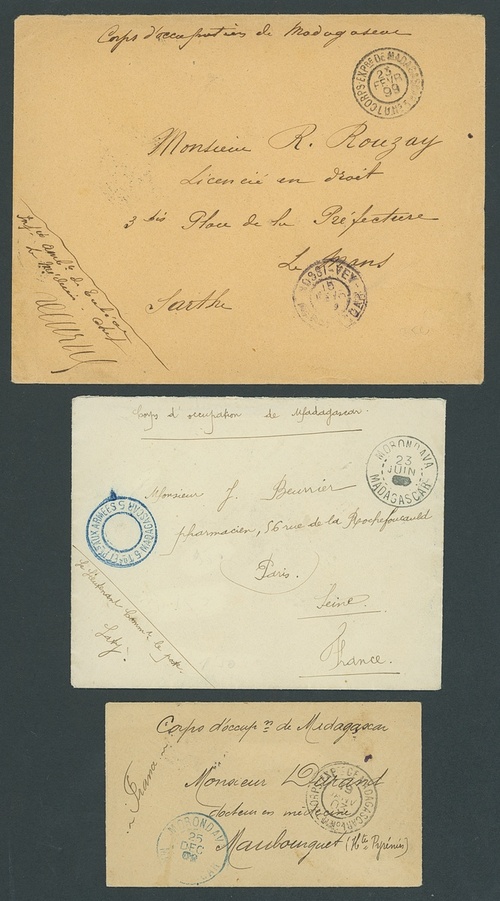 Corps d'occupation de Madagascar
CORPS EXPRE DE MADAGASCAR
23
FEVR
99
Monsieur R. Rouzay
Licencié en droit
3 bis Place de la Préfecture
Le Mans
Sarthe
NOSSI-VEY
15
Corps d'occupation de Madagascar
MORONDAVA
23
JUIN
MADAGASCAR
Monsieur J. Beurrier
pharmacien, 56 rue de la Rochefoucauld
Paris.
Seine.
France.
TRÉS. ET POSTES AUX ARMÉES 5
MADAGASCAR 5
Le Lieutenant Comm. le poste
Corps d'occupn de Madagascar
Monsieur Durand
docteur en médecine
Maubourguet (Htes Pyrénées)
MORONDAVA
25
DEC